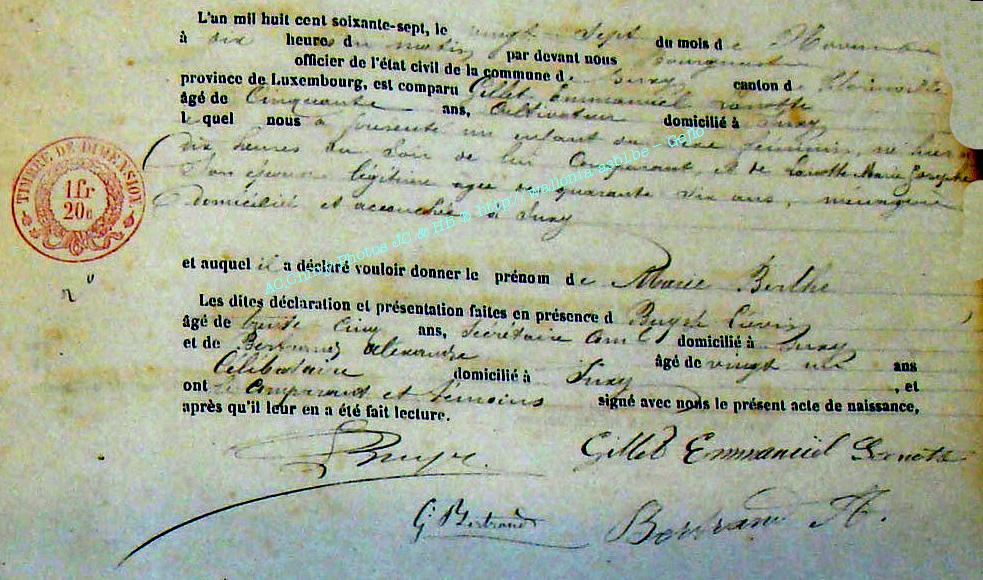 L'an mil huit cent soixante-sept, le vingt-sept du mois de Novembre
à dix heures du matin par devant nous Bourgmestre
officier de l'état civil de la commune de Suxy canton de Florenville
province de Luxembourg, est comparu Gillet Emmanuel Lanotte
âgé de Cinquante ans, Cultivateur domicilié à Suxy
lequel nous a présenté un enfant du sexe féminin, né hier à
dix heures du soir de lui Comparant, et de Lanotte Marie Josephe
son épouse légitime âgée de quarante six ans, ménagère
domiciliée et accouchée à Suxy
et auquel il a déclaré vouloir donner le prénom de Marie Berthe
Les dites déclaration et présentation faites en présence d
âgé de trente cinq ans, Secrétaire Com domicilié à Suxy
et de Bertrand Alexandre âgé de vingt ans
Célibataire domicilié à Suxy, et
ont le comparant et temoins signé avec nous le présent acte de naissance,
après qu'il leur en a été fait lecture.
Gillet Emmanuel Lanotte
G. Bertrand
Bertrand A.
TIMBRE DE DIMENSION
1 fr
20 c
AC Chiny Photos JC & HB @ http://wallonia-asbl.be - Geno